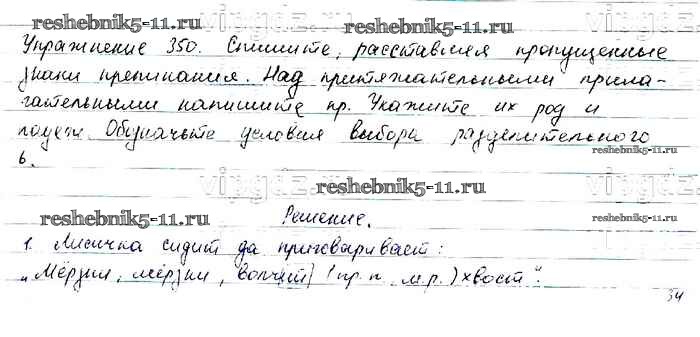 reshebnik5-11.ru
Упражнение 350. Спишите, расставляя пропущенные
знаки препинания. Над притяжательными прила-
reshebnik5-11.ru
гательными напишите пр. Укажите их род и
падеж. Обозначьте условия выбора разделительного
reshebnik5-11.ru
ь.
vipgdz.ru
reshebnik5-11.ru
reshebnik5-11.ru
Решение.
1. Лисичка сидит да приговаривает:
reshebnik5-11.ru
„Мёрзни, мёрзни, волчий (пр. п., м.р.) хвост“.
34